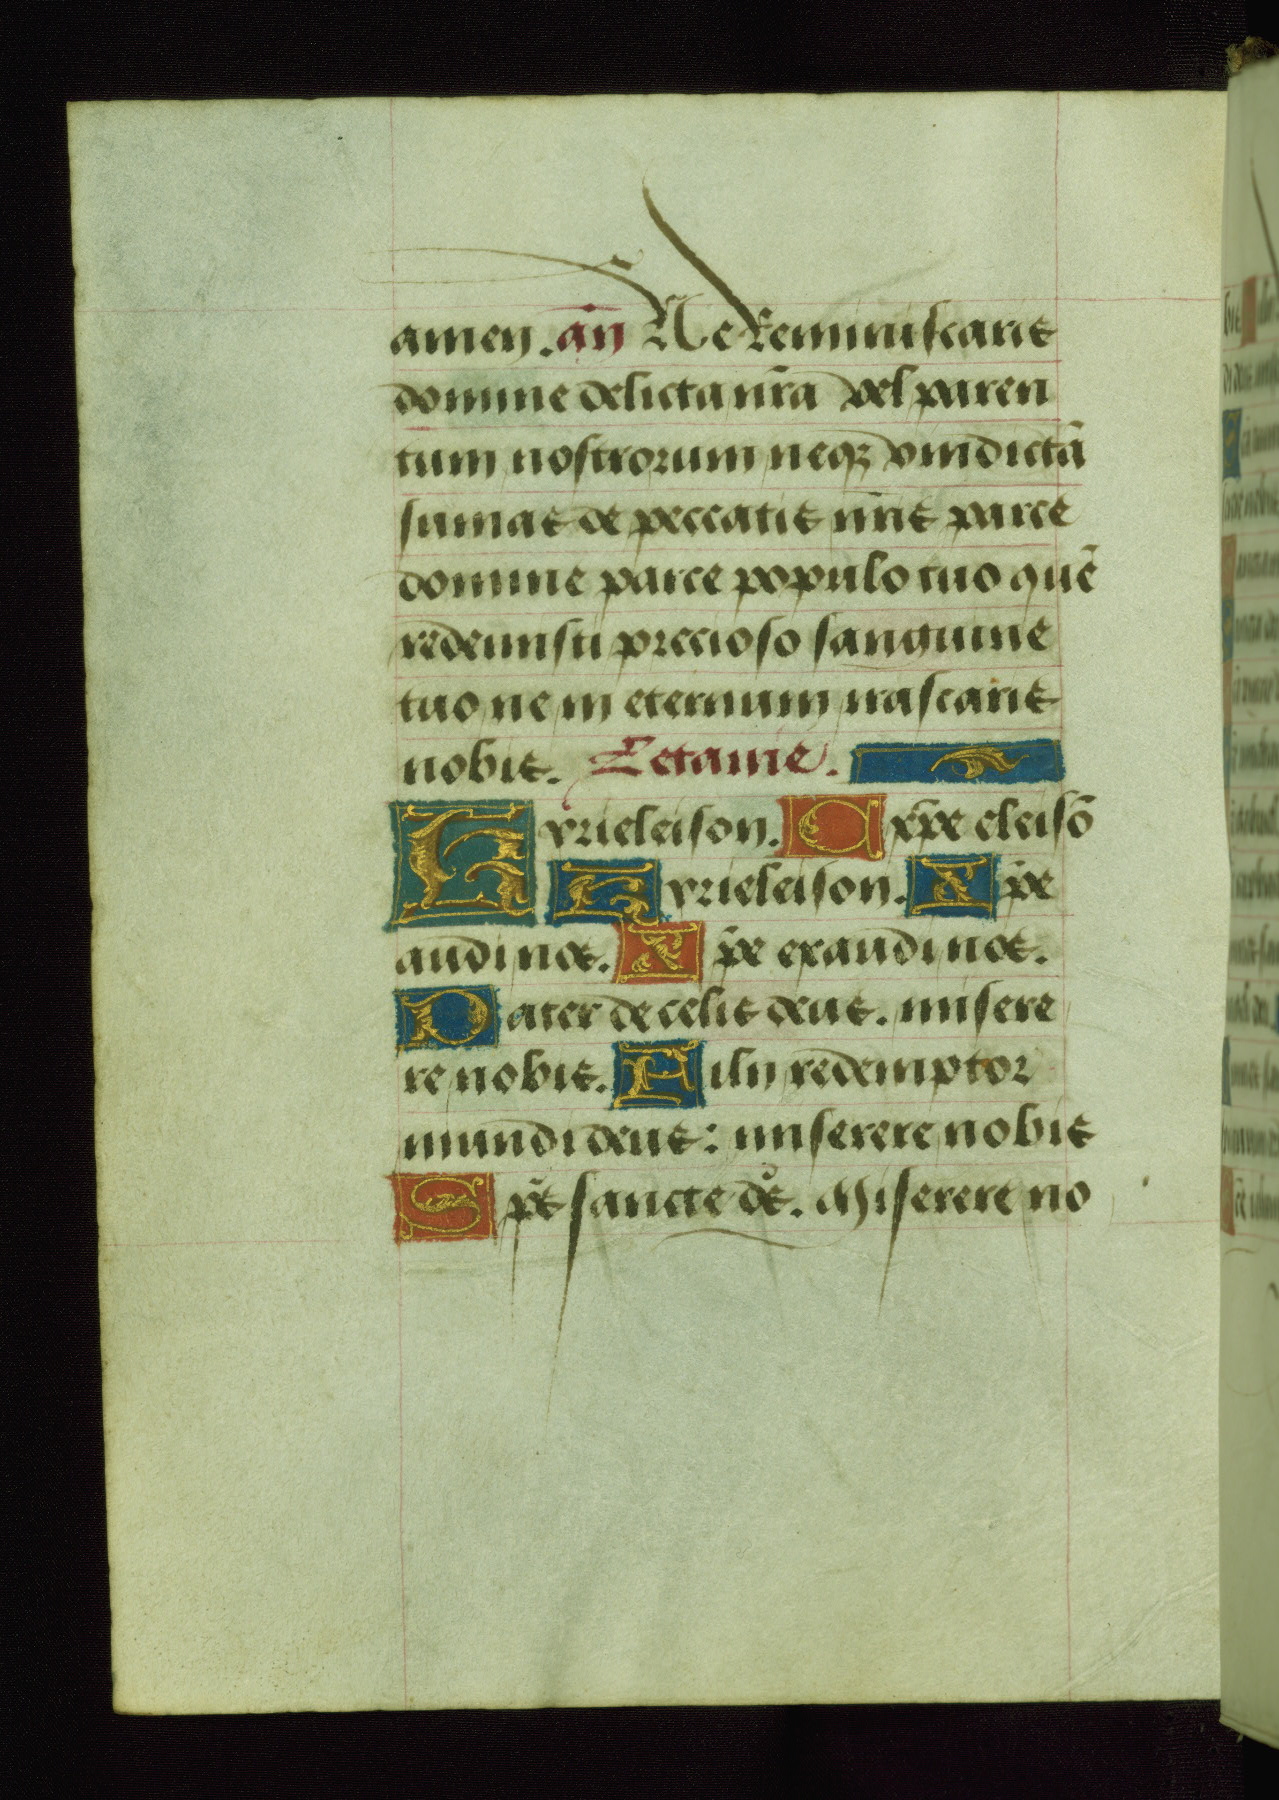 amen. añ Ne Reminiscaris
domine delicta nr̄a vel paren
tum nostrorum neqꝫ vindictā
sumas de peccatis nr̄is parce
domine parce populo tuo quē
redemisti precioso sanguine
tuo ne in eternum irascaris
nobis. Letanie.
Kyrieleison. Cxp̄e eleisō
Kyrieleison. Xp̄e
audi nos. Xp̄e exaudi nos.
Pater de celis deus. misere
re nobis. Fili redemptor
mundi deus: miserere nobis
Sp̄s sancte ds̄. Miserere no